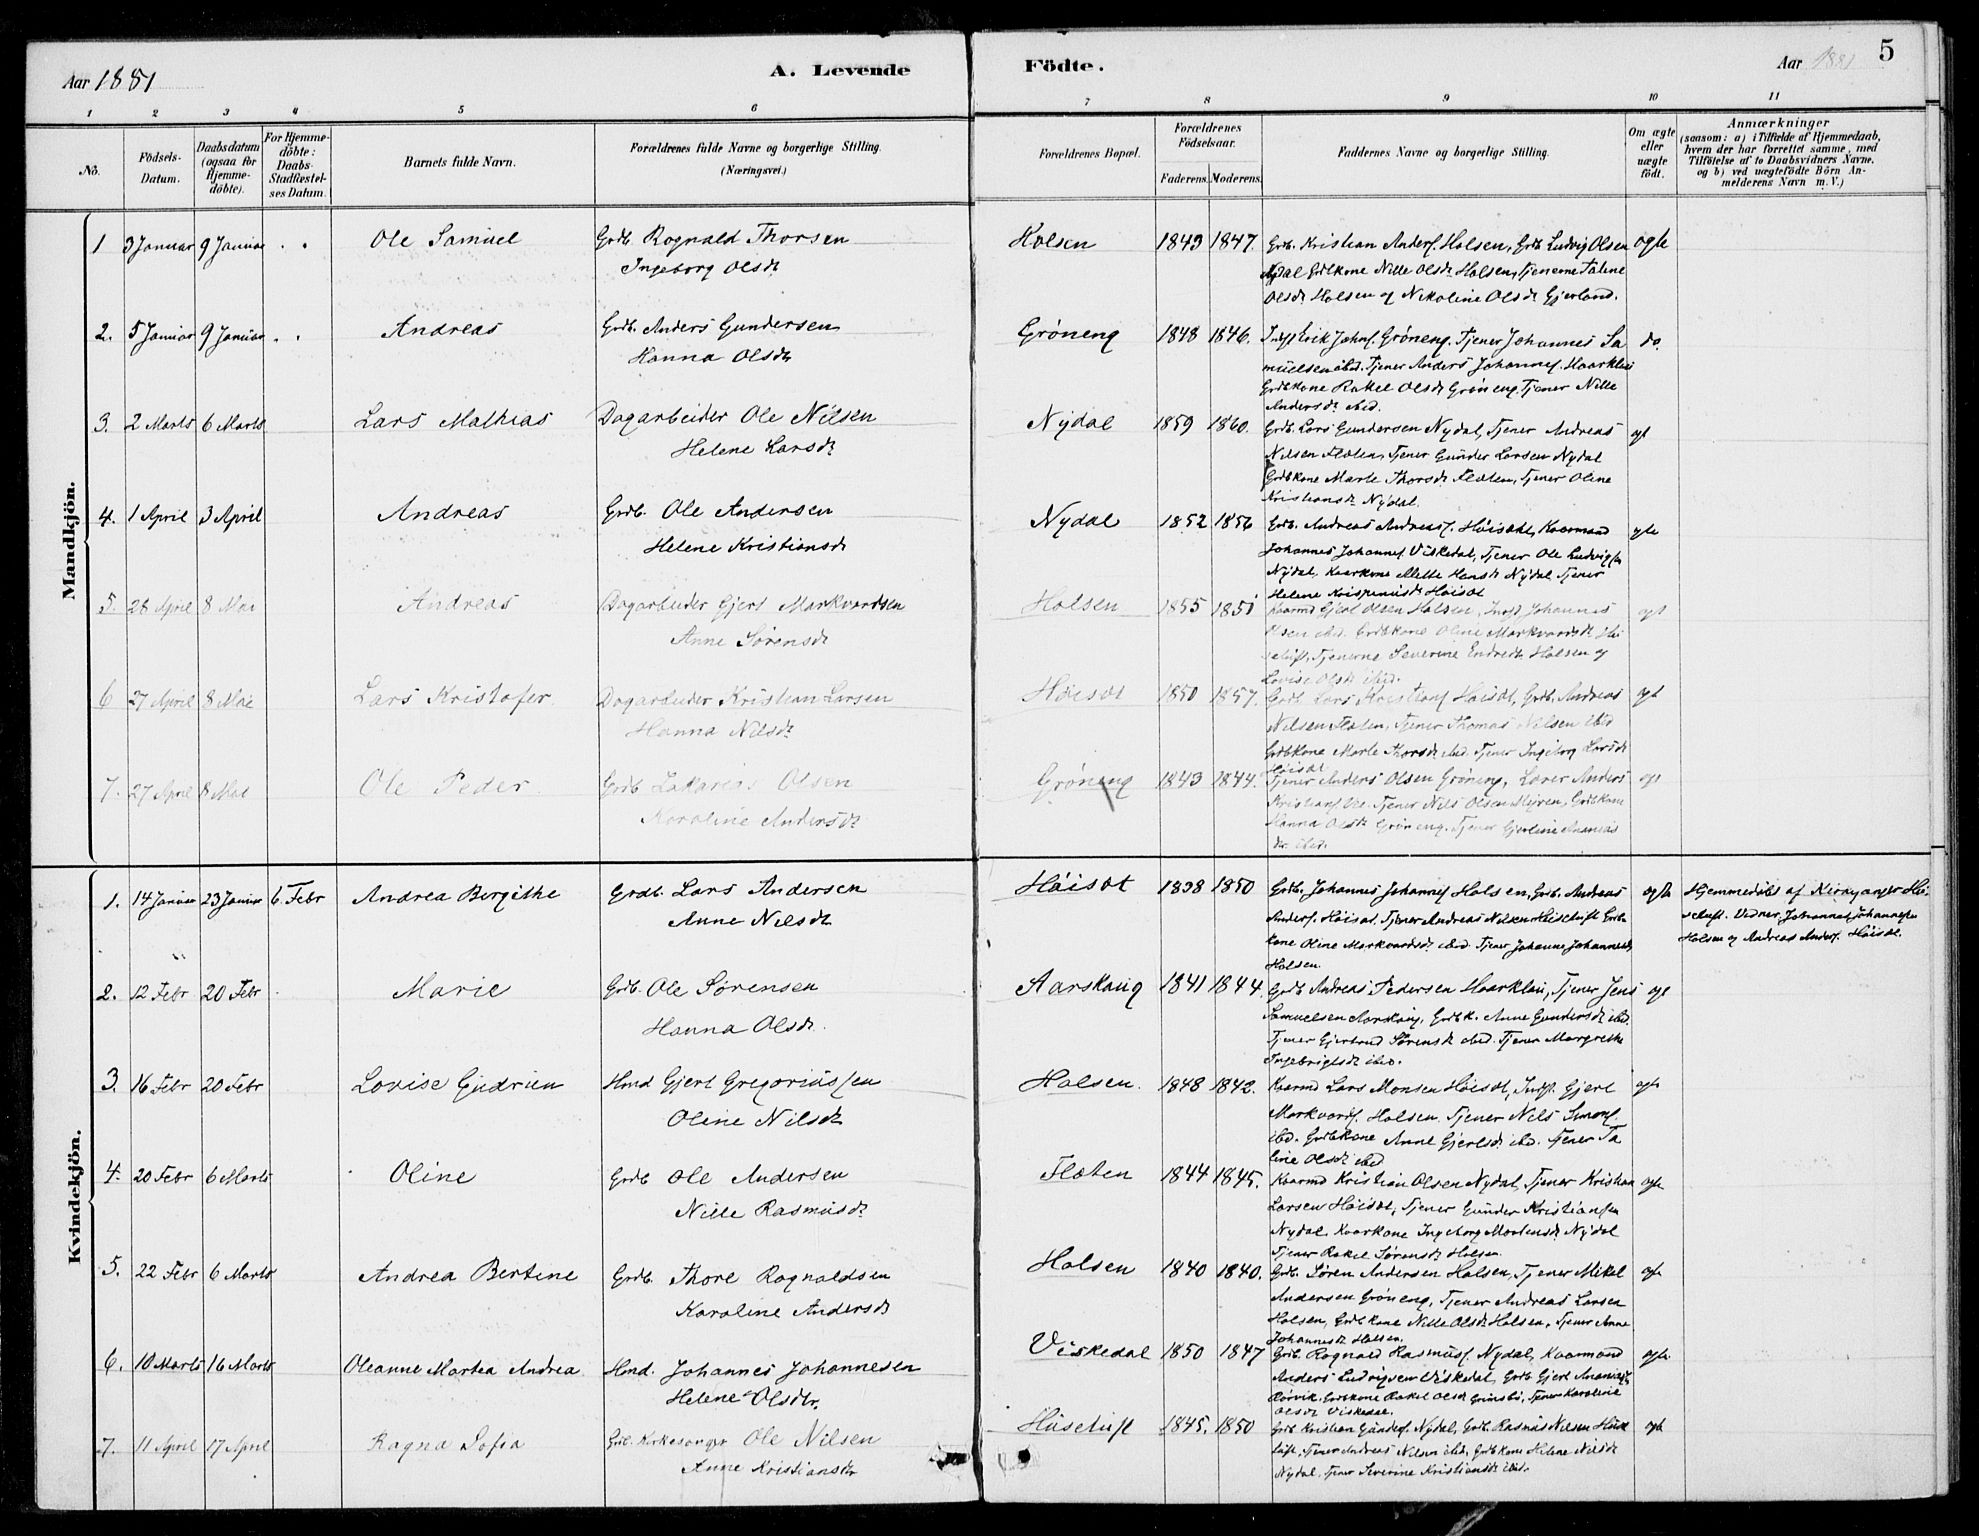 Aar 1881
A. Levende
Födte.
Aar 1881
5
1 2 3 4 5 6 7 8 9 10 11
No.
Födsels-Datum.
Daabsdatum (ogsaa for Hjemme-döbte).
For Hjemme-döbte: Daabs-Stadfæstel-ses Datum.
Barnets fulde Navn.
Forældrenes fulde Navne og borgerlige Stilling.
(Næringsvei.)
Forældrenes Bopæl.
Forældrenes Födselsaar.
Faderens. Moderens.
Faddernes Navne og borgerlige Stilling.
Om ægte eller uægte födt.
Anmærkninger
(saasom: a) i Tilfælde af Hjemmedaab,
hvem der har forrettet samme, med
Tilföielse af to Daabsvidners Navne,
og b) ved uægtefödte Börn An-
melderens Navn m. V.)
Mandkjön.
1 3 Januar 9 Januar Ole Samuel Grdb. Rognald Thorsen Holsen 1843 1847. Grdb. Kristian Anders. Holsen, Grdb Ludvig Olsen ægte
Ingeborg Olsdr Nydal Grdbkone Nille Olsdr Holsen, Tjenerne Taline
Olsdr Holsen og Nikoline Olsdr Gjerland.
2. 5 Januar 9 Januar Andreas Grdb. Anders Gundersen Grøneng 1848 1846. Indst Erik Johns. Grøneng. Tjener Johannes Sa do.
Hanna Olsdr muelsen ibid. Tjener Anders Johannes. Haarklau
Grdbkone Rakel Olsdr Grøneng, Tjener Nille
Andersdr ibid.
3. 2 Marts 6 Marts Lars Mathias Dagarbeider Ole Nilsen Nydal 1859 1860. Grdb. Lars Gundersen Nydal, Tjener Andreas ægt
Helene Larsdr Nilsen Flaten, Tjener Gunder Larsen Nydal
Grdbkone Marte Thorsdr Flaten, Tjener Oline
Kristiansdr Nydal.
4. 1 April 3 April Andreas Grdb. Ole Andersen Nydal 1852 1856 Grdb. Andreas Andreass. Høisæt, Kaarmand ægte
Helene Kristiansdr Johannes Johannes. Viskedal, Tjener Ole Ludvigsen
Nydal, Kaarkone Mette Hansdr Nydal, Tjener
Helene Krispinusdr Høisæt
5. 28 April 8 Mai Andreas Dagarbeider Gjert Markvardsen Holsen 1855 1851 Kaarmd Gjert Olsen Holsen, Indst Johannes ægt
Anne Sørensdr Olsen ibid. Grdbkone Oline Markvardsdr Hø
setuft, Tjenerne Severine Endredr Holsen og
Lovise Olsdr ibid.
6 27 April 8 Mai Lars Kristofer Dagarbeider Kristian Larsen Høisæt 1850 1857. Grdb Lars Kristians. Høisæt, Grdb. Andreas ægt
Hanna Nilsdr Nilsen Flaten, Tjener Thomas Nilsen ibid
Grdbkone Marte Thorsdr ibid. Tjener Ingeborg Larsdr
Høisæt
7. 27 April 8 Mai Ole Peder Grdb Zakarias Olsen Grøneng 1843 1844. Tjener Anders Olsen Grøneng, Lærer Anders ægt
Karoline Andersdr Kristians. Tjener Nils Olsen Myren, Grdbkone
Hanna Olsdr Grøneng. Tjener Gjertine Ananias
dr. ibid.
Kvindekjön.
1. 14 Januar 23 Januar 6. Febr Andrea Bergithe Grdb. Lars Andersen Høisæt 1838 1850 Grdb. Johannes Johannes. Holsen, Grdb. Andreas ægte Hjemmedøbt af Kirkesanger Hø
Anne Nilsdr Anders. Høisæt, Tjener Andreas Nilsen Høisetuft Grdb setuft. Vidner, Johannes Johannessen
kone Oline Markvardsdr ibid. Tjener Johanne Johannesdr Holsen og Andreas Anders. Høisæt.
Holsen.
2. 12 Febr 20 Febr Marie Grdb. Ole Sørensen Aarskaug 1841 1844. Grdb Andreas Pedersen Haarklau, Tjener Jens ægt
Hanna Olsdr. Samuelsen Aarskaug, Grdbk. Anne Gundersdr ibid.
Tjener Gjertrud Sørensdr ibid. Tjener Margrethe
Ingebrigtsdr ibid.
3. 16 Febr 20 Febr Lovise Gudrun Hmd Gjert Gregoriussen Holsen. 1848 1842. Kaarmd Lars Monsen Høisæt, Indst. Gjert ægte
Oline Nilsdr Markvards. Holsen. Tjener Nils Simons.
ibid. Grdbkone Anne Gjertsdr ibid. Tjener Ta
line Olsdr ibid
4. 20 Febr 6 Marts Oline Grdb Ole Andersen Flaten 1844 1845. Kaarmd Kristian Olsen Nydal, Tjener Kristian ægte
Nille Rasmusdr Larsen Høisæt, Tjener Gunder Kristiansen
Nydal Kaarkone Ingeborg Mortensdr Nydal
Tjener Rakel Sørensdr Holsen.
5. 22 Febr 6 Marts Andrea Bertine Grdb. Thore Rognaldsen Holsen 1840 1840. Grdb. Søren Andersen Holsen, Tjener Mikel ægte
Karoline Andersdr Andersen Grøneng, Tjener Andreas Larsen
Holsen, Grdbkone Nille Olsdr Holsen, Tjener Anne
Johannesdr Holsen.
6. 10 Marts 16 Marts Oleanne Martea Andrea Hmd. Johannes Johannesen Viskedal 1850 1847 Grdb. Rognald Rasmuss. Nydal, Kaarmand ægte
Helene Olsdtr. Anders Ludvigsen Viskedal, Grdb Gjert Ananias.
Rørvik, Grdbkone Rakel Olsdr Grimsbø, Tjener Karoline
Olsdr Viskedal.
7. 11 April 17 April Ragna Sofia Grd. Kirkesanger Ole Nilsen Husetuft 1845. 1850 Grdb Kristian Gunders. Nydal, Grdb. Rasmus Nilsen Huse ægte
Anne Kristiansdr tuft, Tjener Andreas Nilsen ibid, Grdbkone Helene Nilsdr
Nydal, Tjener Severine Kristiansdr ibid.